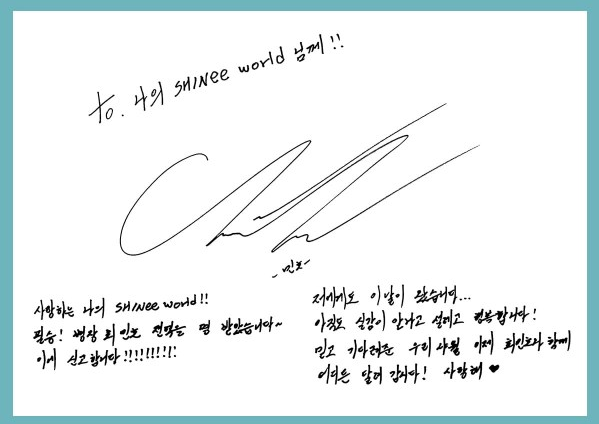 to. 나의 SHINee world 님께!!
-민호-
사랑하는 나의 SHINee world!!
필승! 병장 최민호 전역을 명 받았습니다~
이에 신고합니다!!!!!!!!!
저에게도 이날이 왔습니다...
아직도 실감이 안나고 설레고 행복합니다!
믿고 기다려준 우리 샤월 이제 최민호와 함께
어디든 달려 갑시다! 사랑해 ♥